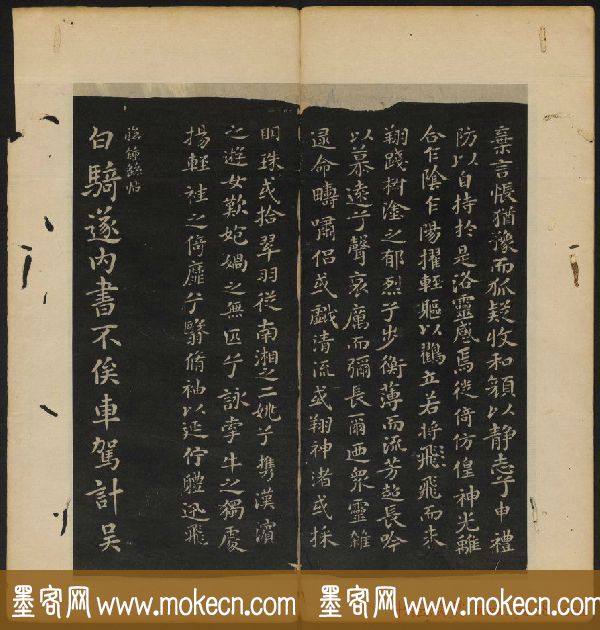 棄言悵猶豫而狐疑收和顏以靜志兮申禮
防以自持於是洛靈感焉徙倚仿偟神光離
合乍陰乍陽擢輕軀以鶴立若將飛飛而未
翔踐椒塗之郁烈兮步衡薄而流芳超長吟
以慕遠兮聲哀厲而彌長爾迺眾靈雜
遝命疇嘯侶或戲清流或翔神渚或採
明珠或拾翠羽從南湘之二姚兮攜漢濱
之遊女歎媧之無匹兮詠牽牛之獨處
揚輕袿之倚靡兮翳脩袖以延佇體迅飛
臨鍾繇帖
白騎遂內書不俟車駕計吴
墨客网 www.mokecn.com 墨客网 www.mokecn.com